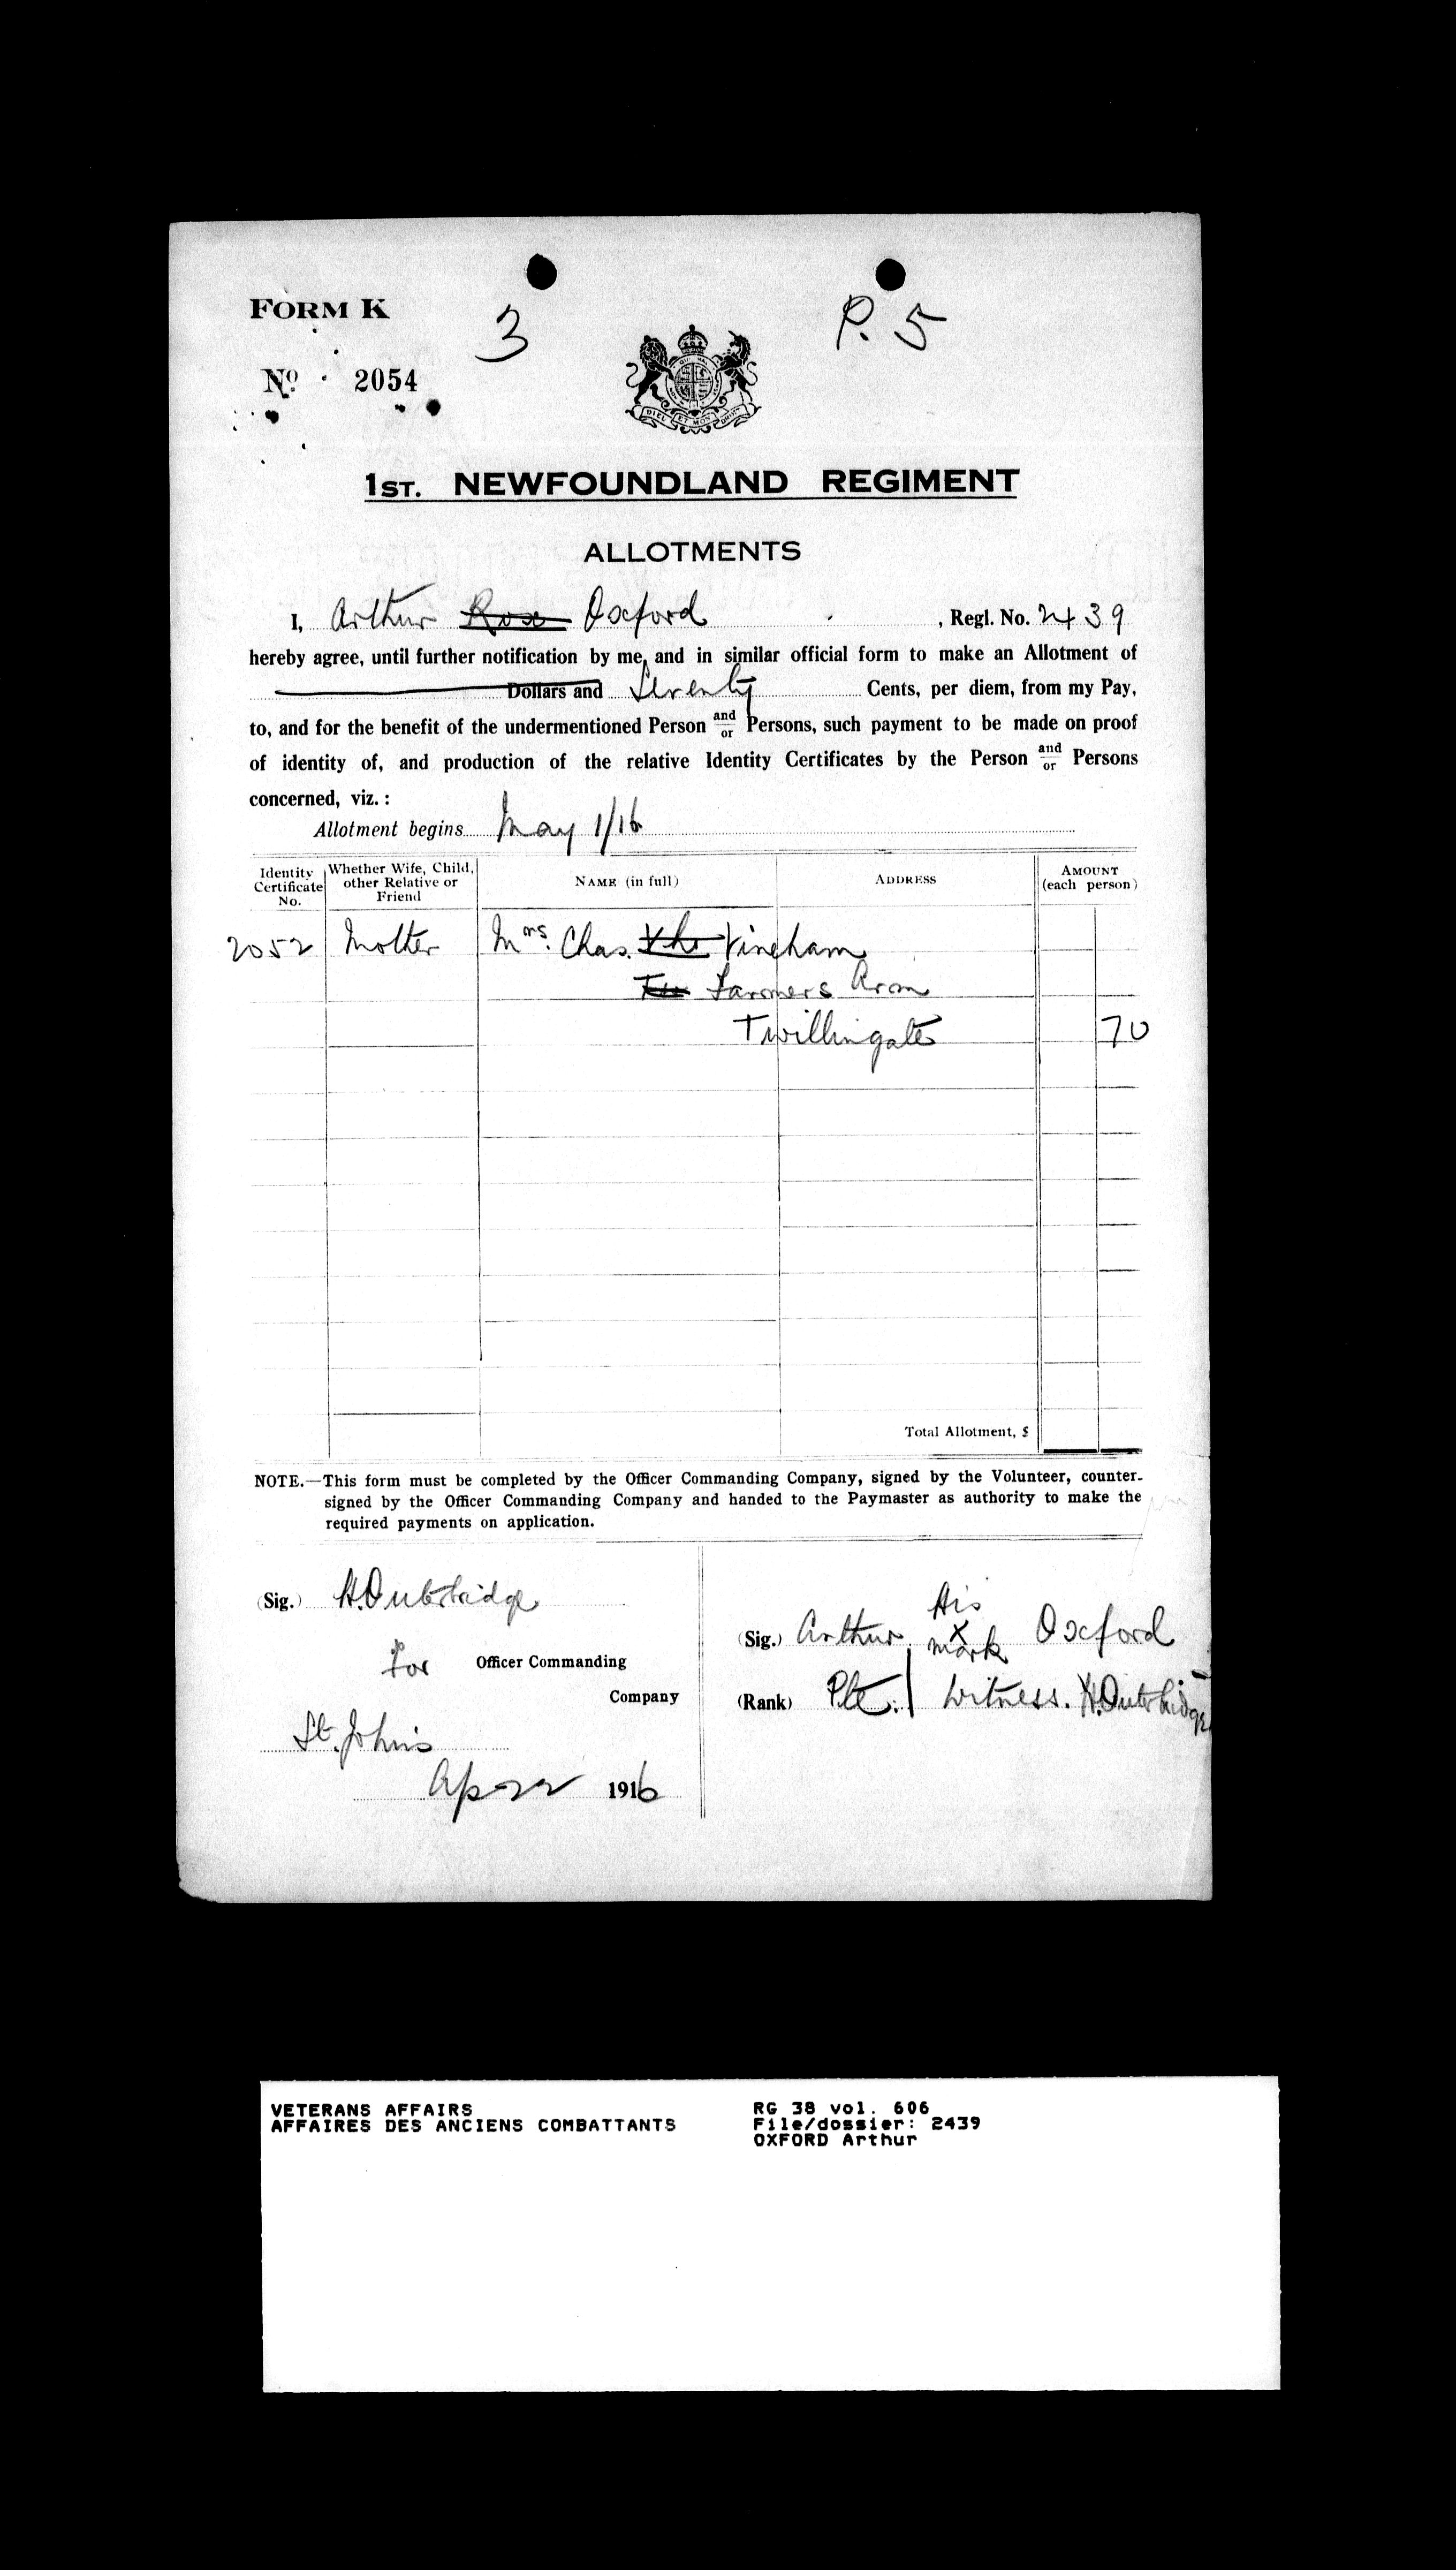 FORM K
3
P. 5
No. 2054
DIEU ET MON DROIT
1ST. NEWFOUNDLAND REGIMENT
ALLOTMENTS
I, Arthur Rose Oxford , Regl. No. 2439
hereby agree, until further notification by me, and in similar official form to make an Allotment of
Dollars and Seventy Cents, per diem, from my Pay,
to, and for the benefit of the undermentioned Person and/or Persons, such payment to be made on proof
of identity of, and production of the relative Identity Certificates by the Person and/or Persons
concerned, viz. :
Allotment begins May 1/16
Identity Certificate No.
Whether Wife, Child, other Relative or Friend
NAME (in full)
ADDRESS
AMOUNT (each person)
2052 Mother Mrs. Chas. Vineham
Farmers Arm
Twillingate 70
Total Allotment, $
NOTE.—This form must be completed by the Officer Commanding Company, signed by the Volunteer, counter-
signed by the Officer Commanding Company and handed to the Paymaster as authority to make the
required payments on application.
(Sig.) H. Outerbridge
for Officer Commanding
Company
St. John's
Ap 22 1916
(Sig.) Arthur His X mark Oxford
(Rank) Pte. Witness. H. Outerbridge
VETERANS AFFAIRS
AFFAIRES DES ANCIENS COMBATTANTS
RG 38 vol. 606
File/dossier: 2439
OXFORD Arthur